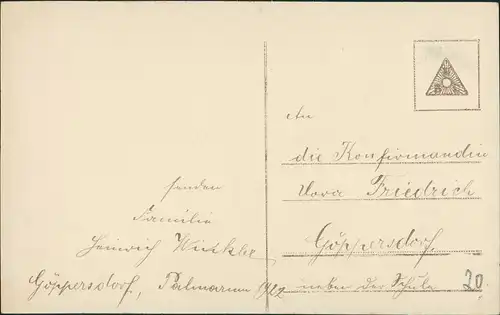 senden
Familie
Heinrich
Göppersdorf, Palmarum 1922
An
die Konfirmandin
Dora Friedrich
Göppersdorf.
neben der Schule
20